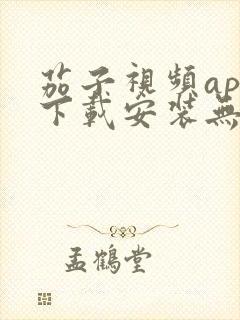 茄子視頻ap
下載安裝無
孟鶴堂